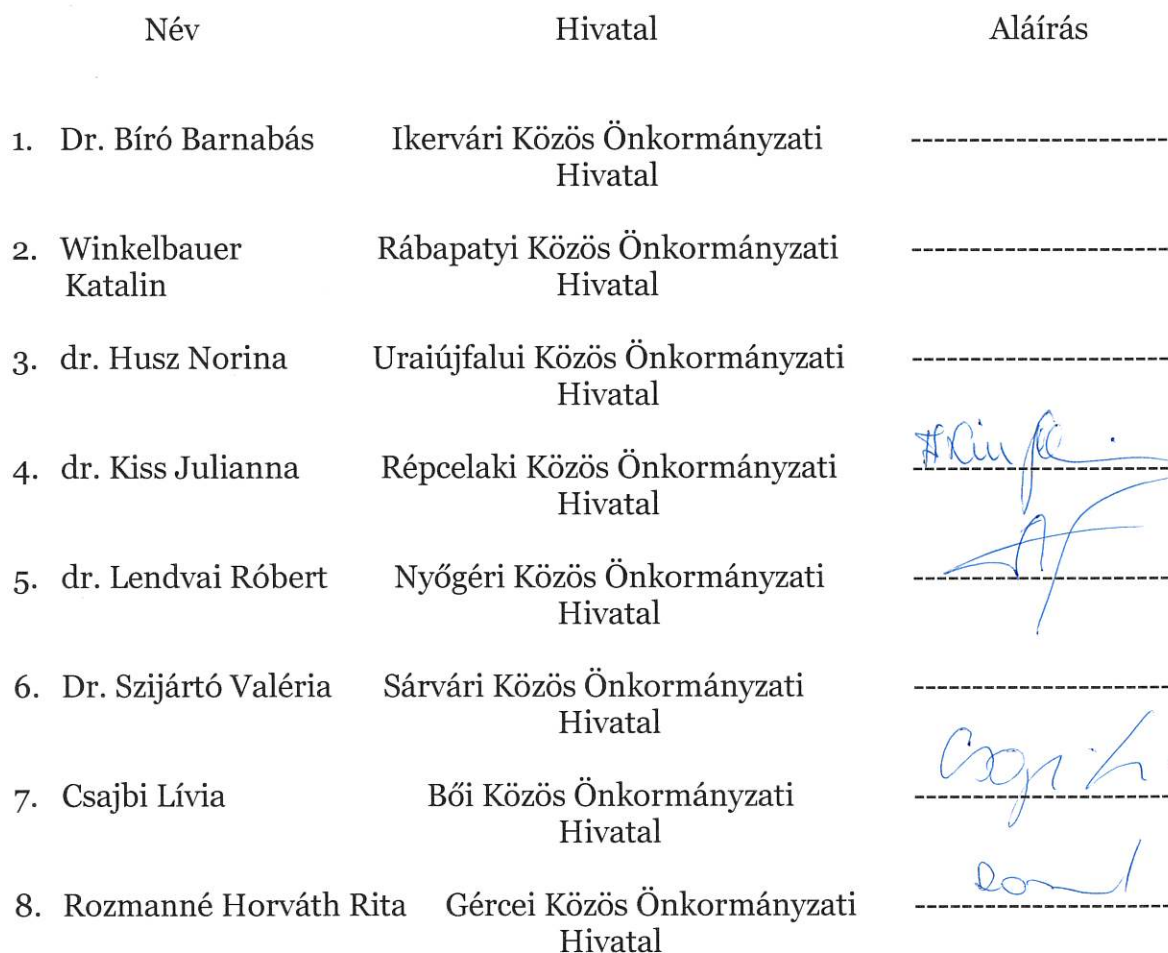 Név Hivatal Aláírás
1. Dr. Bíró Barnabás Ikervári Közös Önkormányzati
Hivatal
2. Winkelbauer Rábapatyi Közös Önkormányzati
Katalin Hivatal
3. dr. Husz Norina Uraiújfalui Közös Önkormányzati
Hivatal
4. dr. Kiss Julianna Répcelaki Közös Önkormányzati
Hivatal
5. dr. Lendvai Róbert Nyőgéri Közös Önkormányzati
Hivatal
6. Dr. Szijártó Valéria Sárvári Közös Önkormányzati
Hivatal
7. Csajbi Lívia Bői Közös Önkormányzati
Hivatal
8. Rozmanné Horváth Rita Gércei Közös Önkormányzati
Hivatal